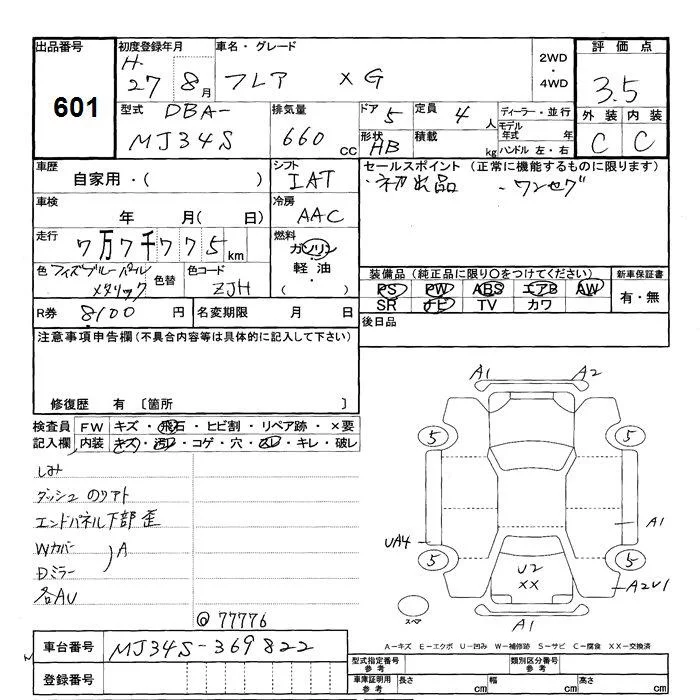 出品番号 601
初度登録年月 H 27年 8月
車名・グレード フレア XG
2WD・4WD
評価点 3.5
外装 内装
C C
型式 DBA-
MJ34S
排気量 660 cc
ドア 5
定員 4人
形状 HB
積載 kg
ディーラー・並行
モデル年式 年
ハンドル 左・右
車歴 自家用・( )
シフト IAT
冷房 AAC
セールスポイント (正常に機能するものに限ります)
・初出品 ・ワンセグ
車検 年 月( 日)
走行 7万7千775km
燃料 ガソリン
軽油・
( )
色 フィズブルーパール
メタリック
色替
色コード ZJH
装備品 (純正品に限り○をつけてください)
PS PW ABS エアB AW
SR ナビ TV カワ
新車保証書
有・無
R券 8100円
名変期限 月 日
後日品
注意事項申告欄(不具合内容等は具体的に記入して下さい)
修復歴 有 〔箇所 〕
検査員記入欄
FW キズ・飛石・ヒビ割・リペア跡・×要
内装 キズ・汚レ・コゲ・穴・スレ・キレ・破レ
しみ
ダッシュのリアト
エンドパネル下部歪
Wカバー
Dミラー
) A
各AU
@77776
A1 A2
5 5
UA4 A1
5 5
U2
XX
A2U1
スペア
A1
A-キズ E-エクボ U-凹み W-補修跡 S-サビ C-腐食 XX-交換済
車台番号 MJ34S-369822
登録番号
型式指定番号 参考
類別区分番号 参考
車庫証明用 参考
長さ cm 幅 cm 高さ cm